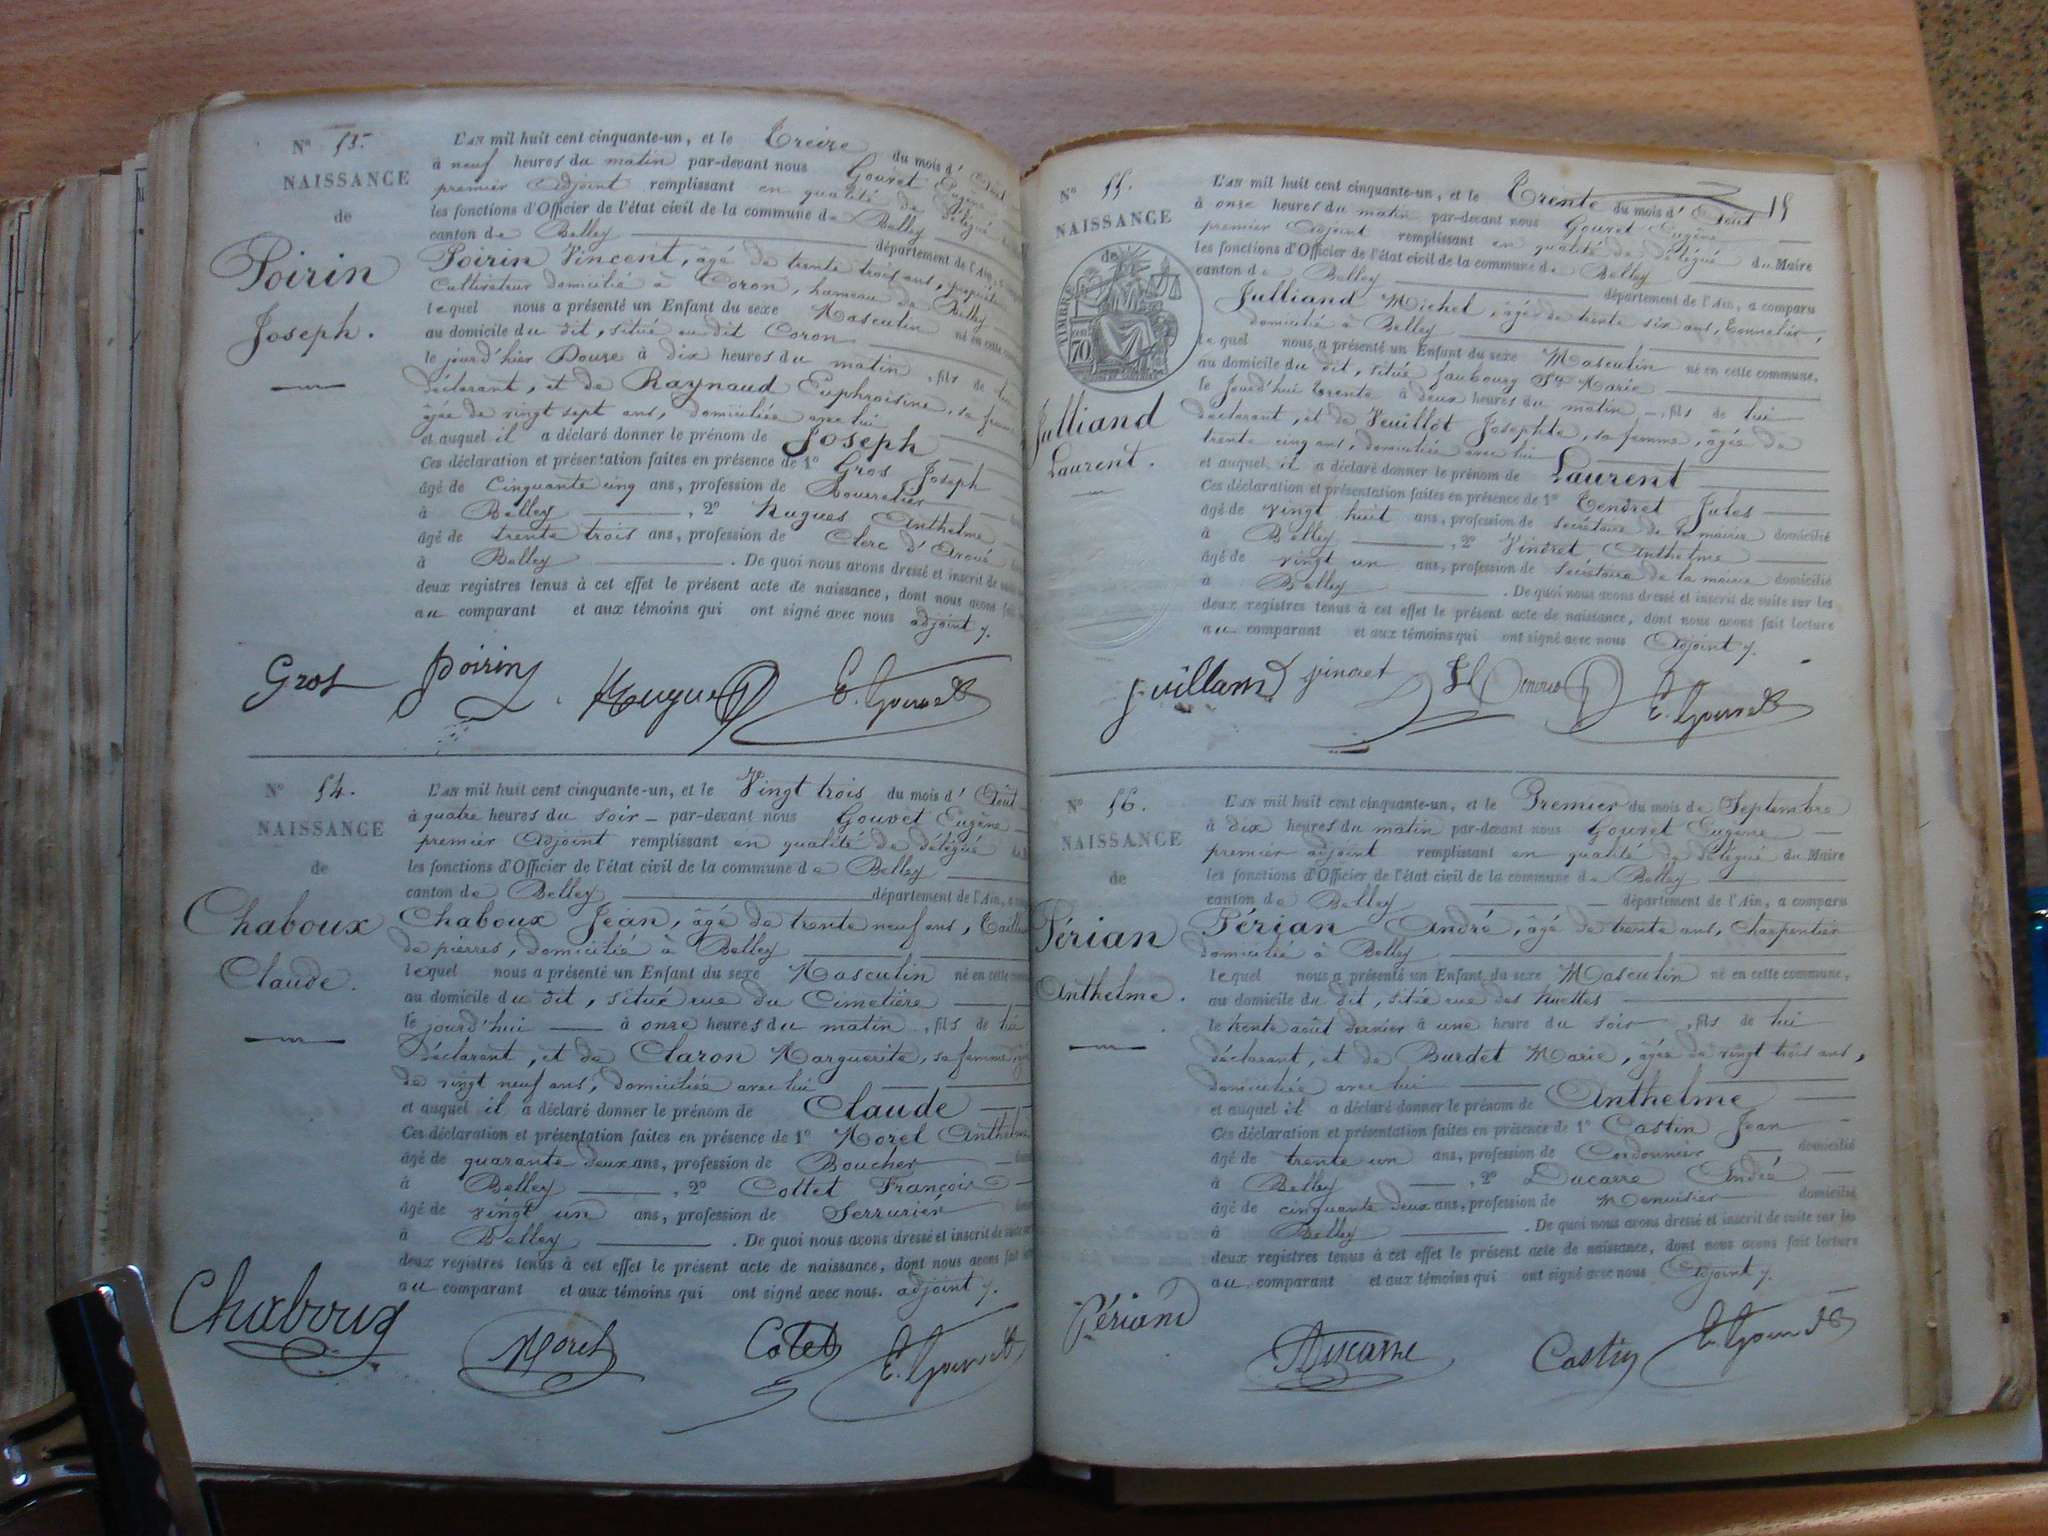 N° 53.
NAISSANCE
de
Poirin
Joseph.
L'AN mil huit cent cinquante-un, et le Treize du mois d'Août
à neuf heures du matin par-devant nous Gouvet Eugène
premier Adjoint remplissant en qualité de délégué
les fonctions d'Officier de l'état civil de la commune de Belley
canton de Belley département de l'Ain,
Poirin Vincent, âgé de trente trois ans, propriétaire
cultivateur domicilié à Coron, hameau de Belley
lequel nous a présenté un Enfant du sexe Masculin né en cette
au domicile du dit, situé au dit Coron
le jourd'hier Douze à dix heures du matin, fils de lui
déclarant, et de Raynaud Euphroisine, sa femme
âgée de vingt sept ans, domiciliée avec lui
et auquel il a déclaré donner le prénom de Joseph
Ces déclaration et présentation faites en présence de 1° Gros Joseph
âgé de Cinquante cinq ans, profession de
à Belley, 2° Hugues Anthelme
âgé de trente trois ans, profession de Clerc d'Avoué
à Belley. De quoi nous avons dressé et inscrit de suite
deux registres tenus à cet effet le présent acte de naissance, dont nous avons fait
au comparant et aux témoins qui ont signé avec nous adjoint
Gros Poirin Hugues E. Gouvet
N° 54.
NAISSANCE
de
Chaboux
Claude.
L'AN mil huit cent cinquante-un, et le Vingt trois du mois d'Août
à quatre heures du soir par-devant nous Gouvet Eugène
premier Adjoint remplissant en qualité de délégué
les fonctions d'Officier de l'état civil de la commune de Belley
canton de Belley département de l'Ain,
Chaboux Jean, âgé de trente neuf ans, Tailleur
de pierres, domicilié à Belley
lequel nous a présenté un Enfant du sexe Masculin né en cette
au domicile du dit, situé rue du Cimetière
le jourd'hui à onze heures du matin, fils de lui
déclarant, et de Claron Marguerite, sa femme âgée
de vingt neuf ans, domiciliée avec lui
et auquel il a déclaré donner le prénom de Claude
Ces déclaration et présentation faites en présence de 1° Morel Anthelme
âgé de quarante deux ans, profession de Boucher
à Belley, 2° Cottet François
âgé de vingt un ans, profession de Serrurier
à Belley. De quoi nous avons dressé et inscrit de suite
deux registres tenus à cet effet le présent acte de naissance, dont nous avons fait
au comparant et aux témoins qui ont signé avec nous. adjoint
Chaboux Morel Cotet E. Gouvet
15
N° 55.
NAISSANCE
de
TIMBRE
70
Julliand
Laurent.
L'AN mil huit cent cinquante-un, et le Trente du mois d'Août
à onze heures du matin par-devant nous Gouvet Eugène
premier Adjoint remplissant en qualité de délégué du Maire
les fonctions d'Officier de l'état civil de la commune de Belley
canton de Belley département de l'Ain, a comparu
Julliand Michel, âgé de trente six ans, tonnelier,
domicilié à Belley
lequel nous a présenté un Enfant du sexe Masculin né en cette commune,
au domicile du dit, situé faubourg Ste Marie
le Jourd'hui trente à deux heures du matin, fils de lui
déclarant, et de Veuillot Josephte, sa femme, âgée de
trente cinq ans, domiciliée avec lui
et auquel il a déclaré donner le prénom de Laurent
Ces déclaration et présentation faites en présence de 1° Tendret Jules
âgé de vingt huit ans, profession de secrétaire de la mairie domicilié
à Belley, 2° Vindret Anthelme
âgé de vingt un ans, profession de secrétaire de la mairie domicilié
à Belley. De quoi nous avons dressé et inscrit de suite sur les
deux registres tenus à cet effet le présent acte de naissance, dont nous avons fait lecture
au comparant et aux témoins qui ont signé avec nous Adjoint
E. Gouvet
N° 56.
NAISSANCE
de
Périan
Anthelme.
L'AN mil huit cent cinquante-un, et le Premier du mois de Septembre
à dix heures du matin par-devant nous Gouvet Eugène
premier adjoint remplissant en qualité de délégué du Maire
les fonctions d'Officier de l'état civil de la commune de Belley
canton de Belley département de l'Ain, a comparu
Périan André, âgé de trente ans, Charpentier
domicilié à Belley
lequel nous a présenté un Enfant du sexe Masculin né en cette commune,
au domicile du dit, situé rue des Muettes
le trente août dernier à une heure du soir, fils de lui
déclarant, et de Burdet Marie, âgée de vingt trois ans,
domiciliée avec lui
et auquel il a déclaré donner le prénom de Anthelme
Ces déclaration et présentation faites en présence de 1° Castin Jean
âgé de trente un ans, profession de Cordonnier domicilié
à Belley, 2° Ducarre André
âgé de cinquante deux ans, profession de Menuisier domicilié
à Belley. De quoi nous avons dressé et inscrit de suite sur les
deux registres tenus à cet effet le présent acte de naissance, dont nous avons fait lecture
au comparant et aux témoins qui ont signé avec nous Adjoint
Périand Ducarre Castin E. Gouvet